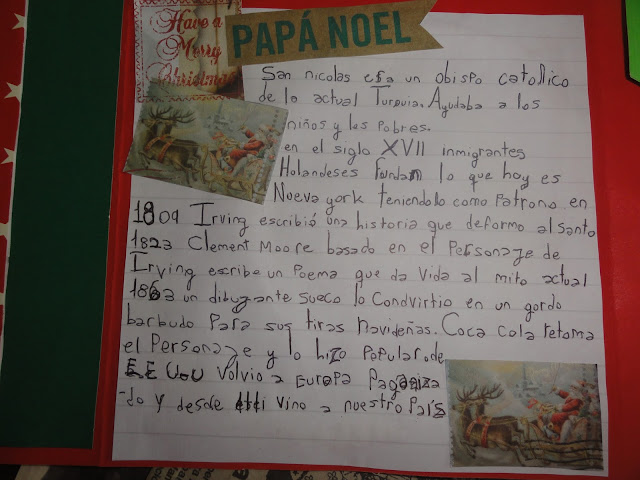 Have a
Merry
Christmas
PAPÁ NOEL
San nicolas era un obispo catollico
de la actual Turquia. Ayudaba a los
niños y les pobres.
en el siglo XVII inmigrantes
Holandeses Fundan lo que hoy es
Nueva york teniendolo como Patrono. en
1809 Irving escribió una historia que deformo al santo
1823 Clement Moore basado en el Personaje de
Irving escribe un Poema que da Vida al mito actual
1863 un dibujante sueco lo Condvirtio en un gordo
barbudo Para sus tiras Navideñas. Coca cola retoma
el Personaje y lo hizo Popular. de
EE UU Volvio a Europa Paganiza
-do y desde alli Vino a nuestro País